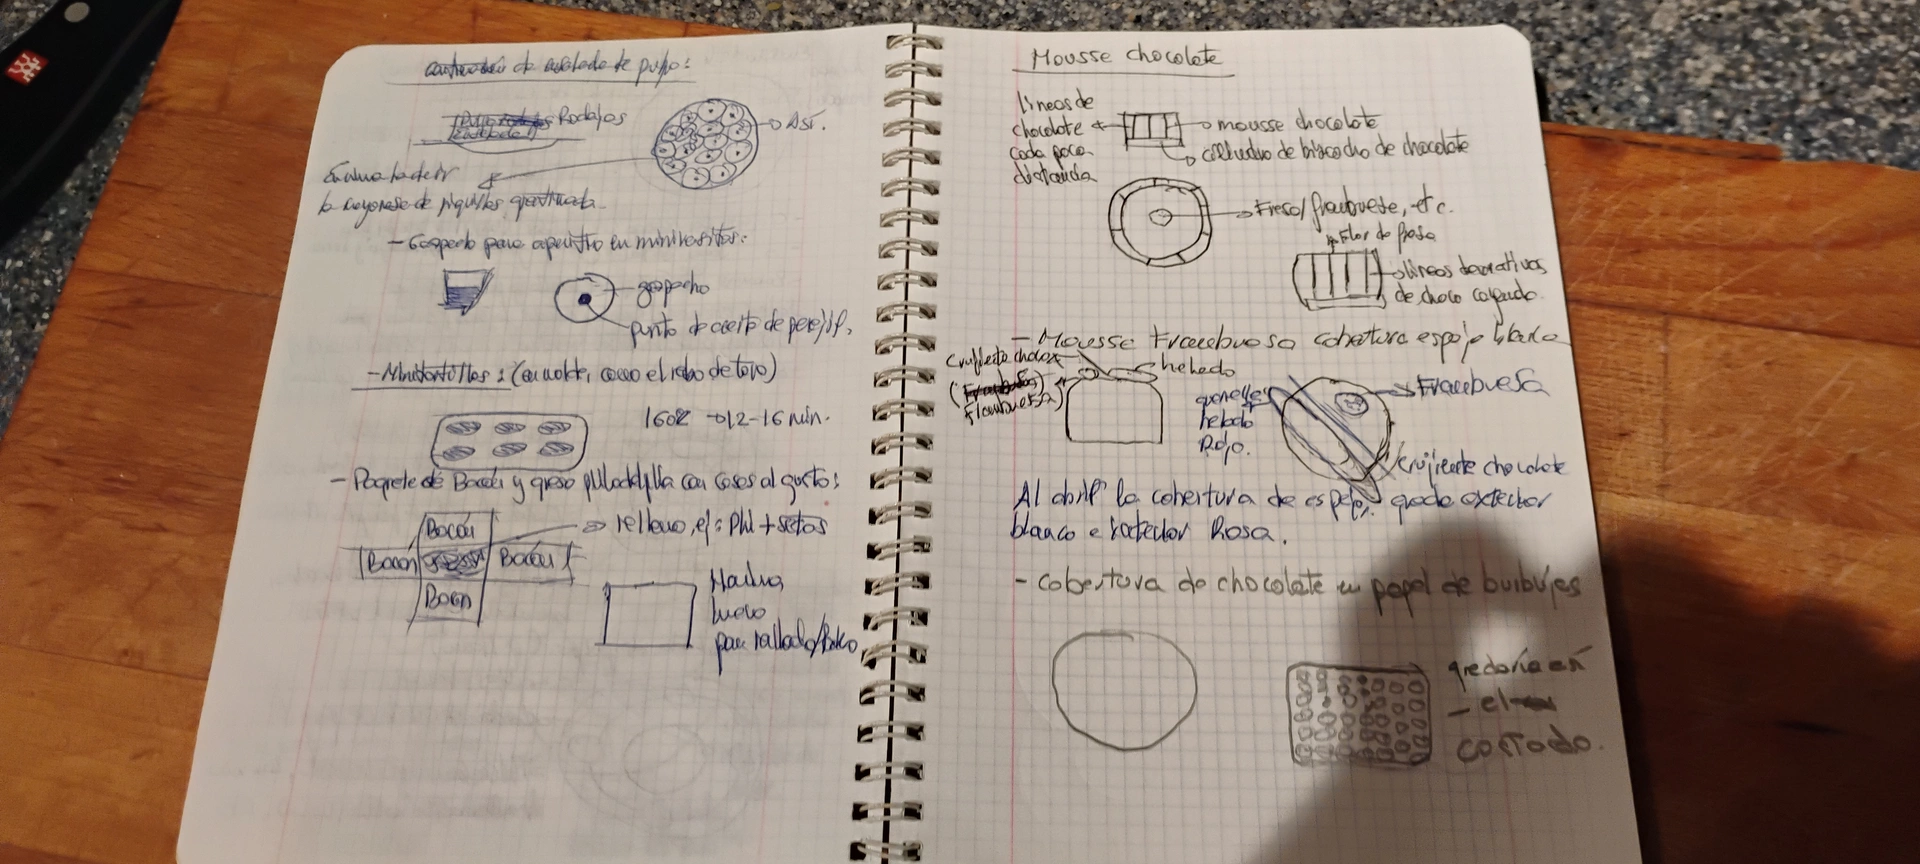 de ensalada de pulpo:
Rodajas
Así.
Encima
mayonesa de piquillos gratinada.
- Gaspacho para aperitivo en minivasitos:
gaspacho
punto de aceite de perejil.
- Minitortillas: (en molde, como el rabo de toro)
160º 12-16 min.
- Paquete de Bacon y queso philadelphia con cosas al gusto:
Bacon
relleno, ej: Phil + setas
Bacon
Bacon
Bacon
Harina
huevo
pan rallado/Panko
Mousse chocolate
líneas de
chocolate
cada poca
distancia
mousse chocolate
cilindro de biscocho de chocolate
Fresa/frambuesa, etc.
Flor de fresa
líneas decorativas
de choco colgando.
- Mousse Frambuesa cobertura espejo blanca
Crujiente choco
helado
Frambuesa
Frambuesa
quenelle
helado
Rojo.
Crujiente chocolate
Al abrir la cobertura de espejo. queda exterior
blanco e interior Rosa.
- cobertura de chocolate en papel de burbujas
quedaría en
- el
costado.